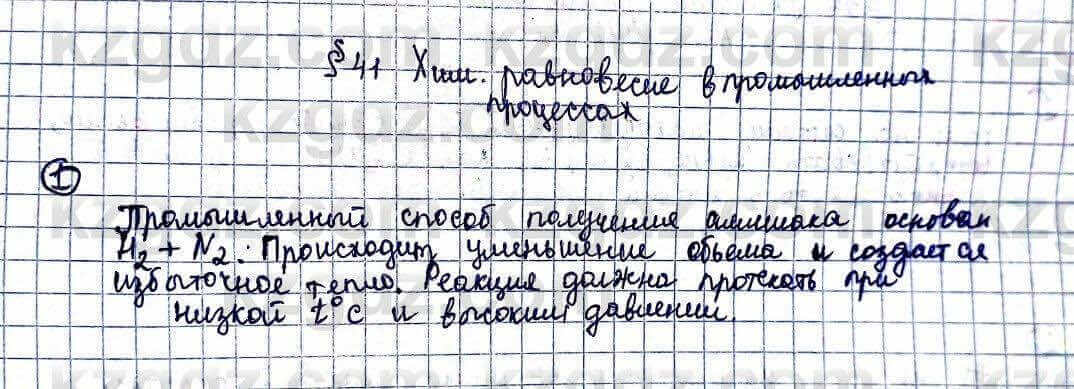 § 41 Хим. равновесие в промышленных
процессах
1
Промышленный способ получения аммиака основан
H2 + N2. Происходит уменьшение объема и создается
избыточное тепло. Реакция должна протекать при
низкой t°C и высоким давлении.
kzgdz.com